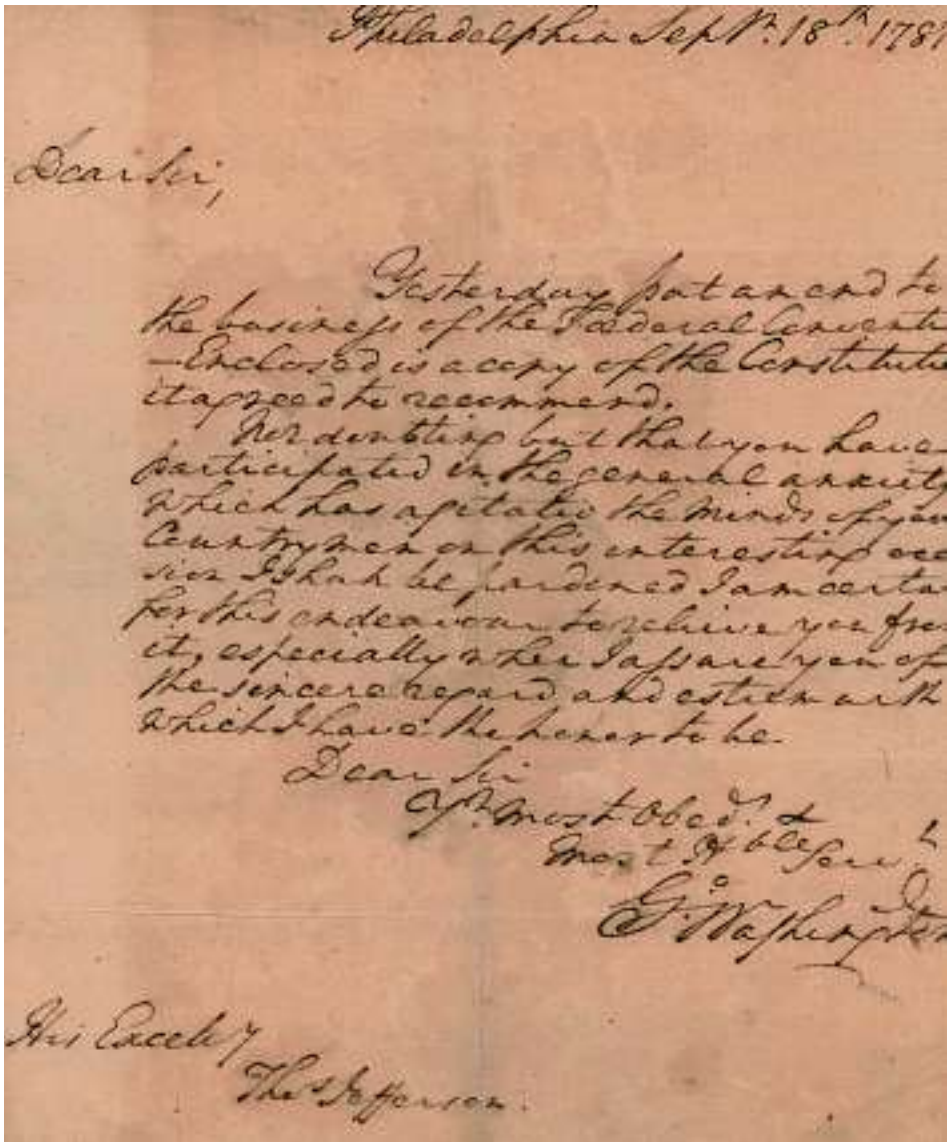 Philadelphia Sepr. 18th. 1787
Dear Sir,
Yesterday put an end to
the business of the Fœderal Conventi
—Enclosed is a copy of the Constitutio
it agreed to recommend.
Not doubting but that you have
participated in the general anxiety
which has agitated the minds of you
Countrymen on this interesting occa
sion I shall be pardoned I am certa
for this endeavour to relieve you fro
it, especially when I assure you of
the sincere regard and esteem with
which I have the honor to be.
Dear Sir
Yr. most Obedt. &
most Hble Servt
Go. Washington
His Excely
Thos. Jefferson.